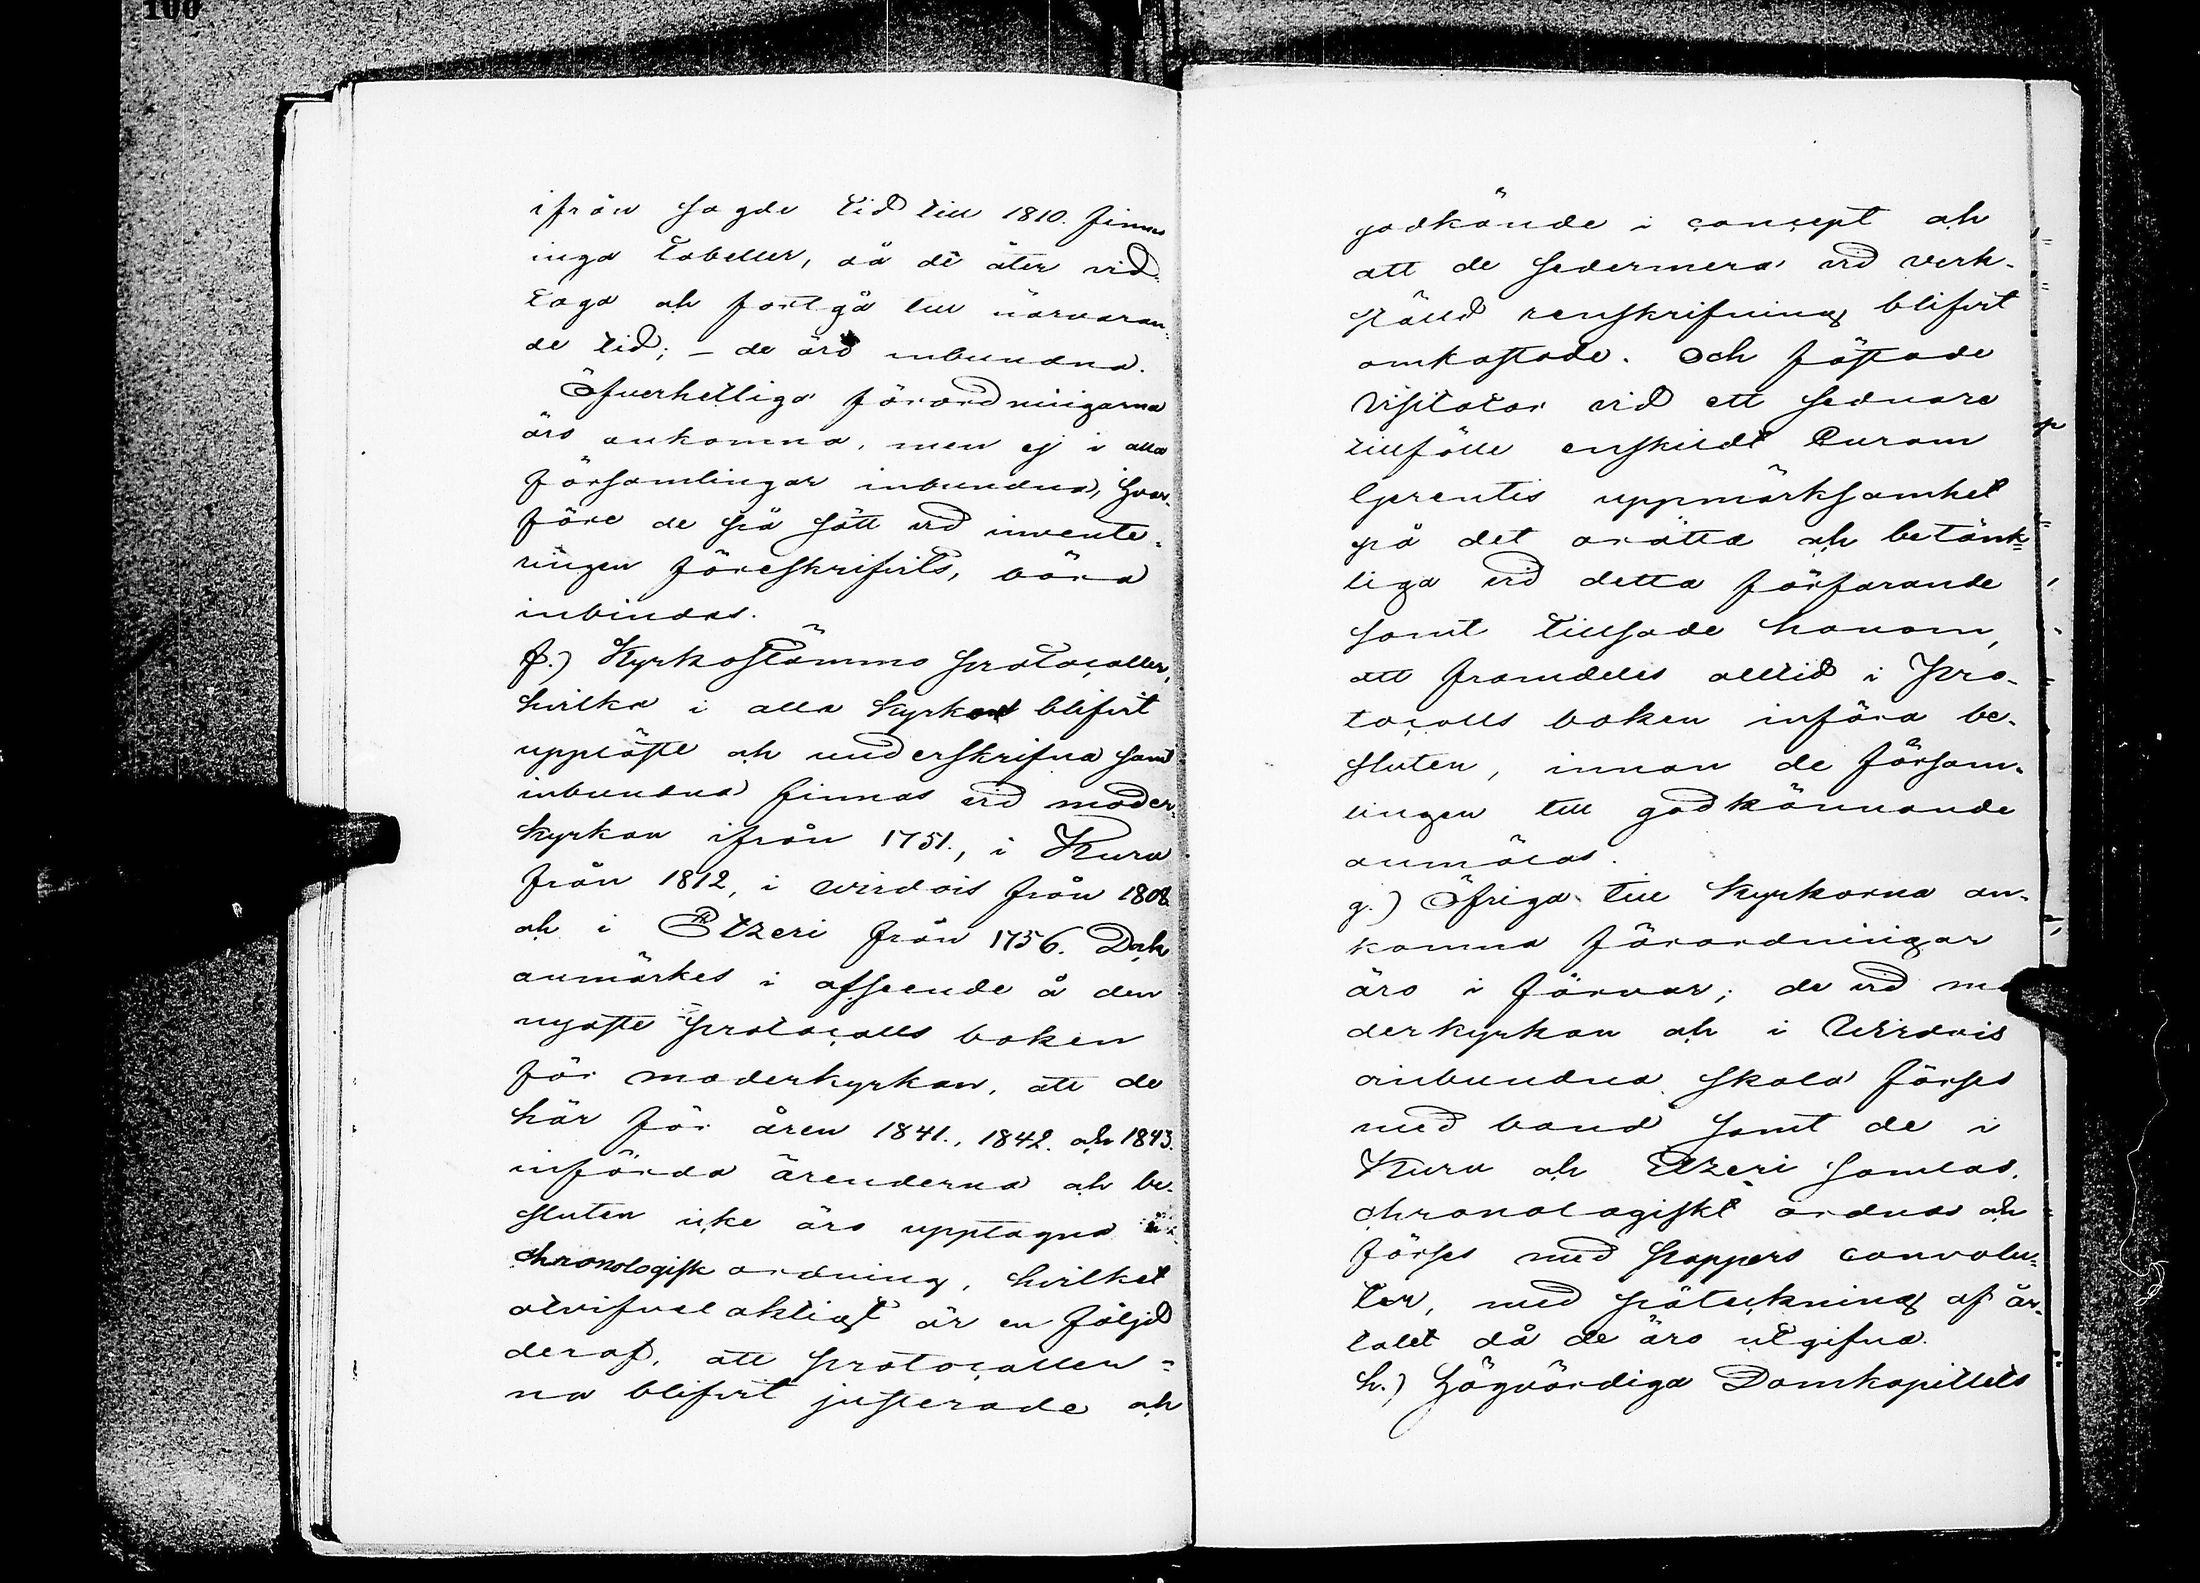 100
ifrån sagde tid till 1810. finnas
inga Tabeller, då de åter vid-
taga och fortgå till närvaran-
de tid; – de äro inbundna.
Öfverhetliga förordningarna
äro ankomna, men ej i alla
församlingar inbundna, hvar-
före de på sätt vid invente-
ringen föreskrifvits, böra
inbindas.
f.) Kyrkostämmo protocoller,
hvilka i alla kyrkor blifvit
uppläste och underskrifna samt
inbundna finnas vid moder-
kyrkan ifrån 1751., i Kuru
från 1812, i Wirdois från 1808
och i Etzeri från 1756. Dock
anmärkes i afseende å den
nyaste protocolls boken
för moderkyrkan, att de
här för åren 1841., 1842. och 1843.
införda ärenderna och be-
sluten icke äro upptagna i
chronologisk ordning, hvilket
otvifvelaktigt är en följd
deraf, att protocoller-
na blifvit justerade och
godkände i concept och
att de sedermera vid verk-
ställd renskrifning blifvit
omkastade. Och fästade
Visitator vid ett sednare
tillfälle enskildt Curam
Gerentis uppmärksamhet
på det orätta och betänk-
liga vid detta förfarande
samt tillsade honom,
att framdeles alltid i Pro-
tocolls boken införa be-
sluten, innan de försam-
lingen till godkännande
anmälas.
g.) Öfriga till Kyrkorna an-
komna förordningar
äro i förvar; de vid mo
derkyrkan och i Wirdois
oinbundna skola förses
med band samt de i
Kuru och Etzeri samlas,
chronologiskt ordnas och
förses med pappers convolu-
ter, med påteckning af år-
talet då de äro utgifna.
h.) Högvördiga Domkapitlets